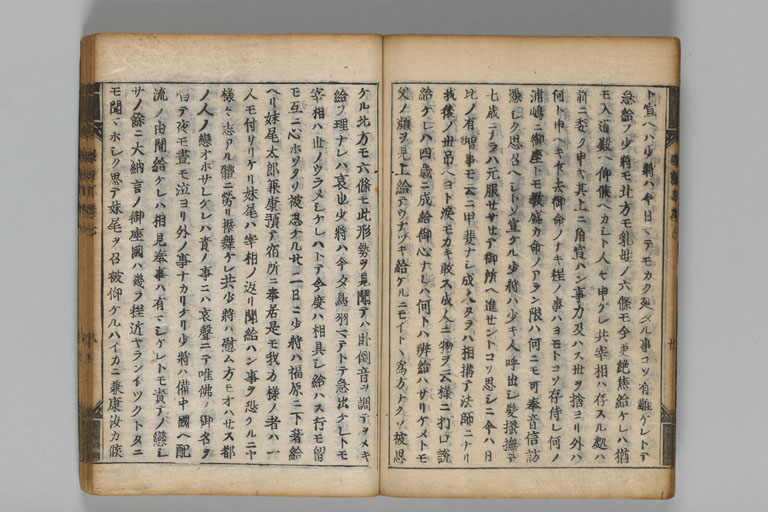 ト宣ヘハ少将ハ今日ニテモカク延ヘル事コソ有難ケレトテ
急給フ少将モ北方モ乳母ノ六條モ今更絶焦給ケレハ猶
モ入道殿ヘ仰候ヘカシト人々申ケレ共宰相ハ存スル処ハ
前ニ委ク申キ其上ニ角宣ハン事力及ハス世ヲ捨ヨリ外ハ
何ト申ヘキ乍去御命ノナキ程ノ事ハヨモトコソ存侍レ何ノ
浦嶋ニ御座トモ教盛カ命ノアラン限ハ何ニモ可奉音信訪
憑シク思召ヘシトソ宣ケル少将ハ少キ人呼出シ髪掻撫テ
七歳ニアラハ元服セサセテ御所ヘ進セントコソ思シニ今ハ日
比ノ有増事モ云ニ甲斐ナシ成人シタラハ相構テ法師ニナリ
我後ノ世吊ヘヨト涙モカキ敢ス成人ニ物ヲ云様ニ打口説
給ケレハ四歳ニ成給御心ナレハ何トハ辨給ハサリケメトモ
父ノ顔ヲ見上給テウナツキ給ケルニモイトヽ為方ナクソ被思
ケル北方モ六條モ此形勢ヲ見聞テハ卧倒音ヲ調テヲメキ
給フ理ナレハ哀也少将ハ今夕鳥羽マテトテ急出ケレトモ
宰相ハ世ノウラメシケレハトテ今度ハ相具シ給ハス行モ留
モ互ニ心ホソクソ被思ケル廿二日ニ少将ハ福原ニ下著給
ヘリ妹尾太郎兼康預テ宿所ニ奉居是モ我カ様ノ者ハ一
人モ付リケリ妹尾ハ宰相ノ返リ聞給ハン事ヲ恐クルニヤ
様々志アル體ニ労リ振舞ケレ共少将ハ慰ム方モオハセス都
ノ人ノ戀オホサレケレハ責ノ事ニハ哀聲ニテ唯佛ノ御名ヲ
唱テ夜モ昼モ泣ヨリ外ノ事ナカリケリ少将ハ備中國ヘ配
流ノ由聞給ケレハ相見奉事ハ有マシケレトモ責テノ戀シ
サノ餘ニ大納言ノ御座國ハ幾ラ程近ヤランイツクトタニ
モ聞マホシク思テ妹尾ヲ召被仰ケルハイカニ兼康汝カ候